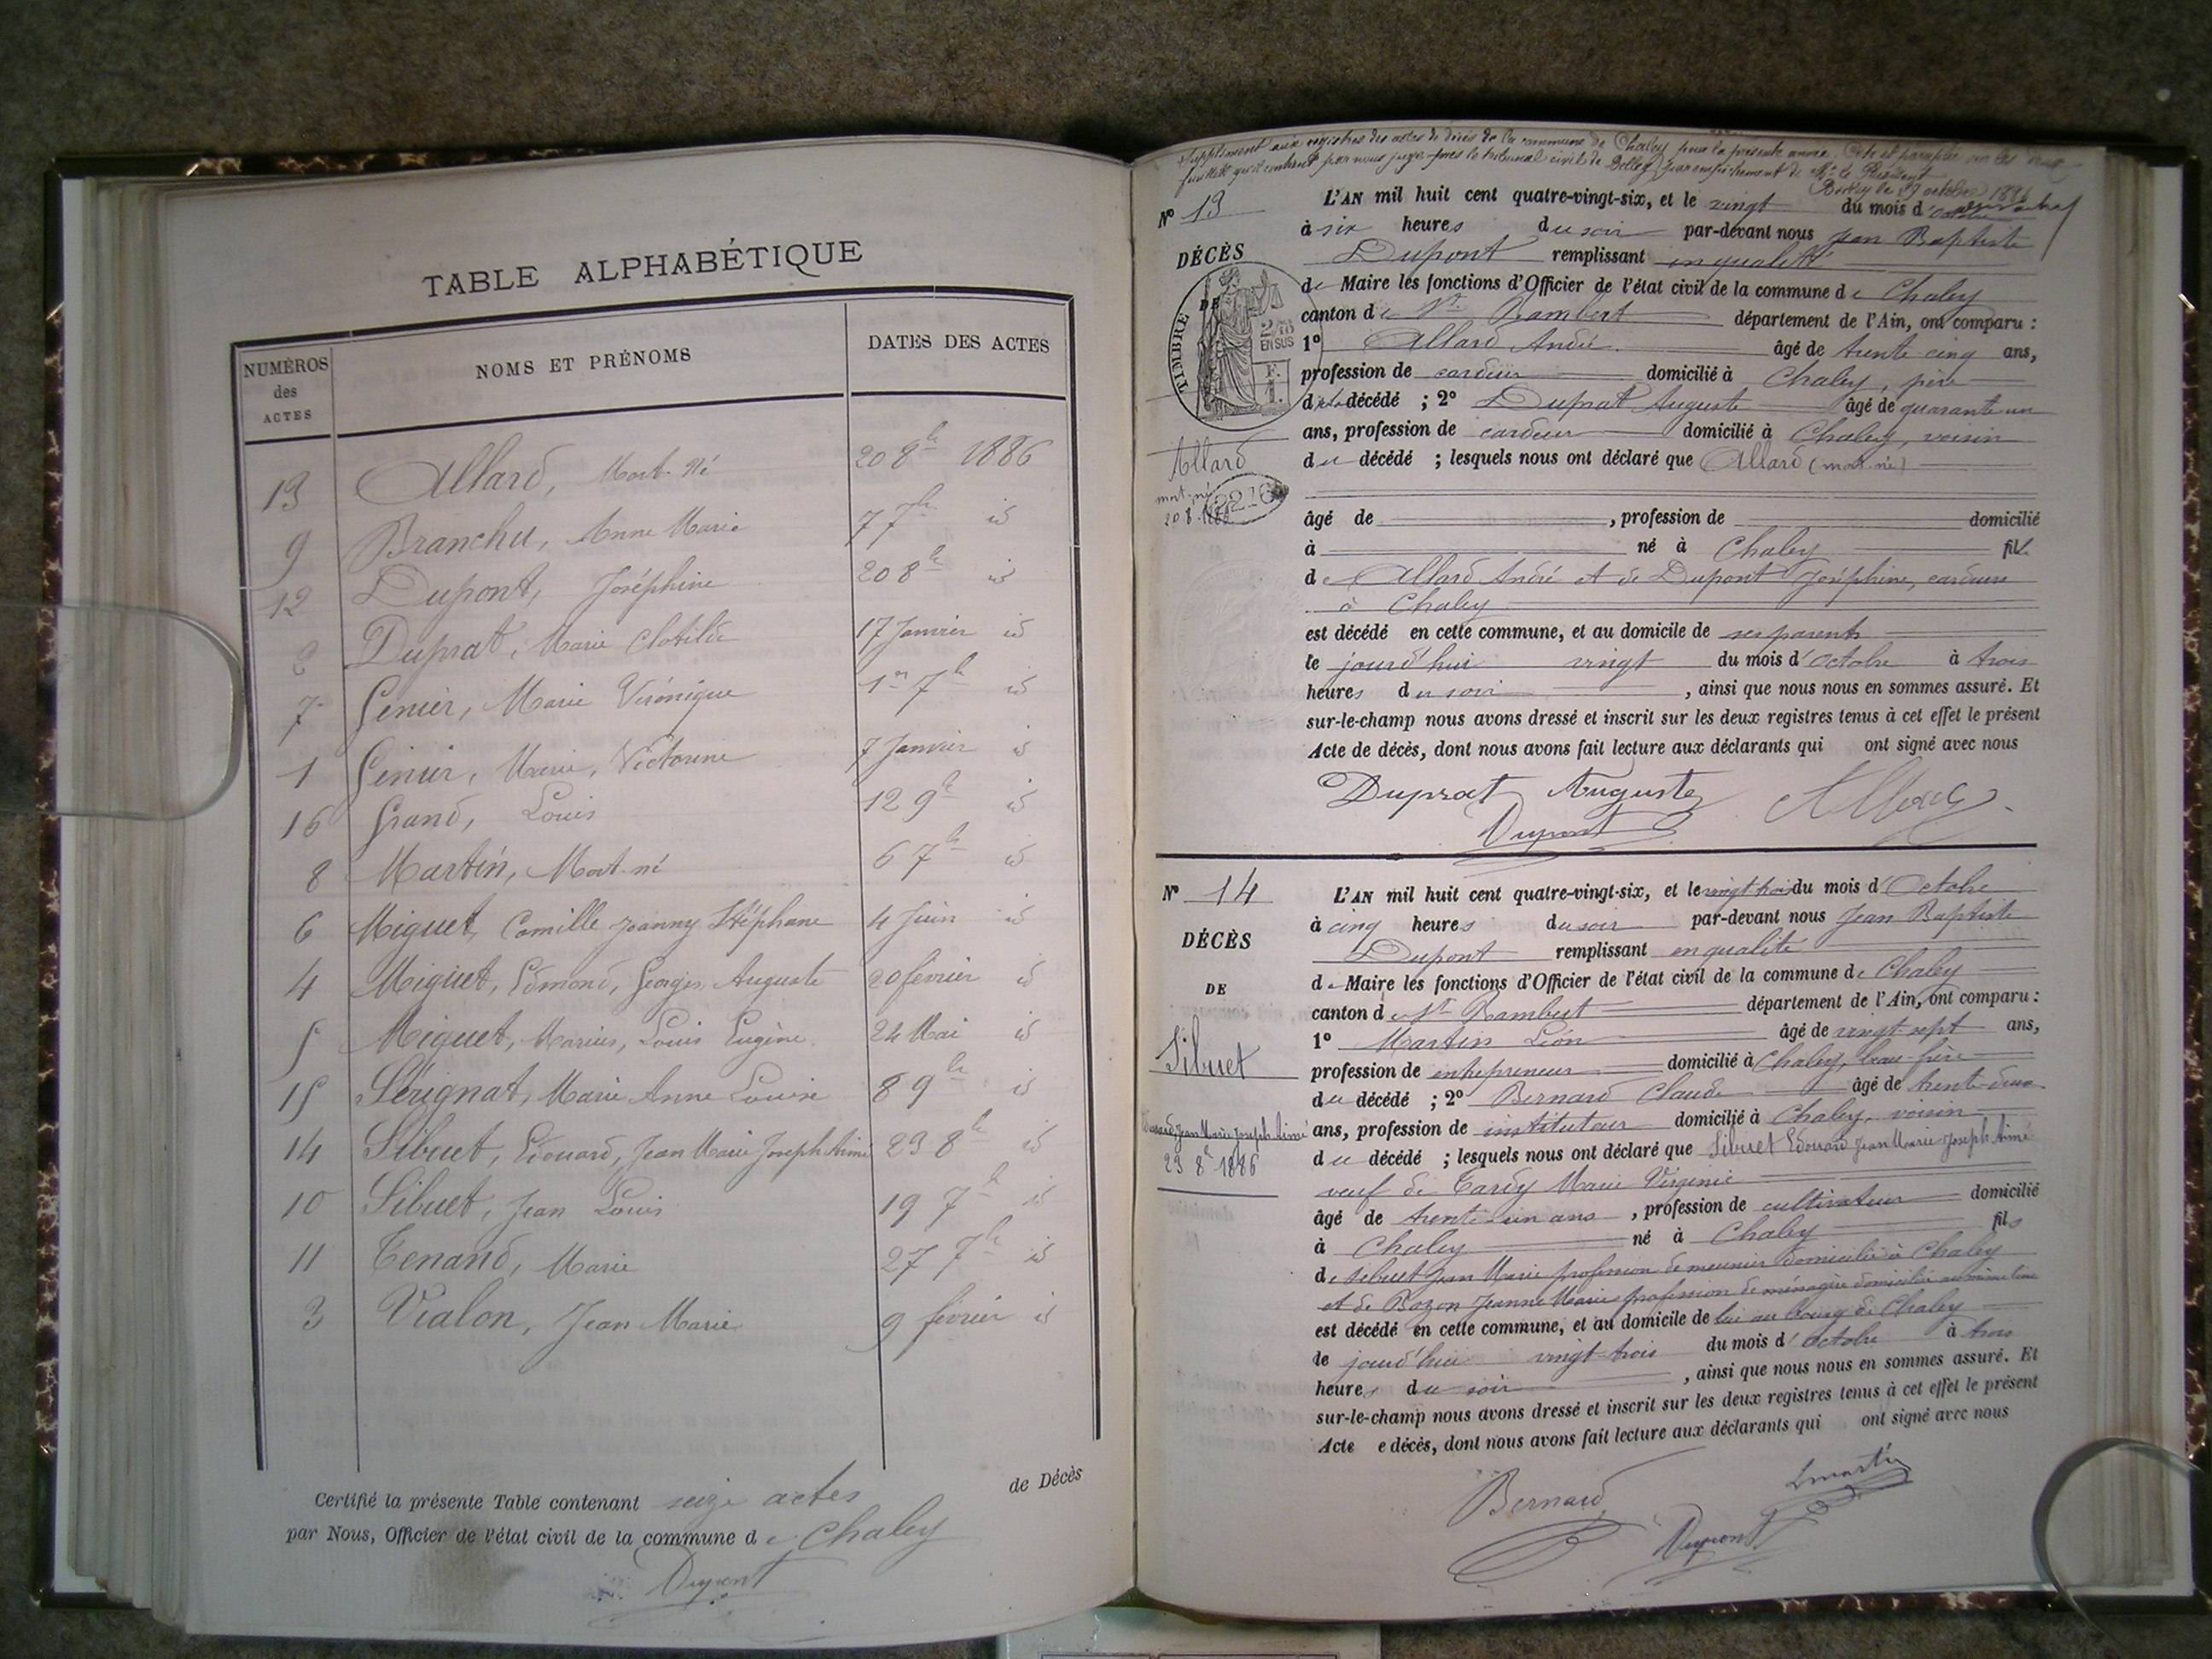 TABLE ALPHABÉTIQUE
NUMÉROS des ACTES
NOMS ET PRÉNOMS
DATES DES ACTES
13 Allard, Mort-Né 20 8bre 1886
9 Branchu, Anne Marie 7 7bre id
12 Dupont, Joséphine 20 8bre id
2 Duprat, Marie Clotilde 17 Janvier id
7 Genier, Marie Véronique 1er 7bre id
1 Genier, Marie, Victorine 7 Janvier id
16 Grand, Louis 12 9bre id
8 Martin, Mort-né 6 7bre id
6 Miguet, Camille Joanny Stéphane 4 Juin id
4 Miguet, Edmond, Georges, Auguste 20 février id
5 Miguet, Marius, Louis Eugène 24 Mai id
15 Sérignat, Marie Anne Louise 8 9bre id
14 Sibuet, Edouard, Jean Marie Joseph Aimé 23 8bre id
10 Sibuet, Jean Louis 19 7bre id
11 Tenand, Marie 27 7bre id
3 Vialon, Jean Marie 9 février id
Certifié la présente Table contenant seize actes de Décès
par Nous, Officier de l'état civil de la commune de Chaley
Dupont
Supplément aux registres des actes de décès de la commune de Chaley pour la présente année. Coté et paraphé
feuillets qu'il contient par nous juge près le tribunal civil de Belley, par empêchement de Mr le Président
Belley le 19 octobre 1886
N° 13
DÉCÈS
DE
TIMBRE
2/10 EN SUS
F. 1.
Allard
mort-né
20 8 1886
L'AN mil huit cent quatre-vingt-six, et le vingt du mois d'octobre
à six heures du soir par-devant nous Jean Baptiste
Dupont remplissant en qualité
de Maire les fonctions d'Officier de l'état civil de la commune de Chaley
canton de St Rambert département de l'Ain, ont comparu :
1° Allard André âgé de trente cinq ans,
profession de cardeur domicilié à Chaley, père
du décédé ; 2° Duprat Auguste âgé de quarante un
ans, profession de cardeur domicilié à Chaley, voisin
du décédé ; lesquels nous ont déclaré que Allard (mort-né)
âgé de , profession de domicilié
à né à Chaley fils
de Allard André et de Dupont Joséphine, cardeurs
à Chaley
est décédé en cette commune, et au domicile de ses parents
le jourd'hui vingt du mois d'octobre à trois
heures du soir , ainsi que nous nous en sommes assuré. Et
sur-le-champ nous avons dressé et inscrit sur les deux registres tenus à cet effet le présent
Acte de décès, dont nous avons fait lecture aux déclarants qui ont signé avec nous
Duprat Auguste Allard
Dupont
N° 14
DÉCÈS
DE
Sibuet
Edouard, Jean Marie Joseph Aimé
23 8bre 1886
L'AN mil huit cent quatre-vingt-six, et le vingt trois du mois d'Octobre
à cinq heures du soir par-devant nous Jean Baptiste
Dupont remplissant en qualité
de Maire les fonctions d'Officier de l'état civil de la commune de Chaley
canton de St Rambert département de l'Ain, ont comparu :
1° Martin Léon âgé de vingt sept ans,
profession de entrepreneur domicilié à Chaley, beau-frère
du décédé ; 2° Bernard Claude âgé de trente-deux
ans, profession de instituteur domicilié à Chaley, voisin
du décédé ; lesquels nous ont déclaré que Sibuet Edouard Jean Marie Joseph Aimé
veuf de Tardy Marie Virginie
âgé de trente-un ans , profession de cultivateur domicilié
à Chaley né à Chaley fils
de Sibuet Jean Marie profession de meunier domicilié à Chaley
et de Bozon Jeanne Marie profession de ménagère domiciliée au même lieu
est décédé en cette commune, et au domicile de lui au bourg de Chaley
le jourd'hui vingt-trois du mois d'octobre à trois
heures du soir , ainsi que nous nous en sommes assuré. Et
sur-le-champ nous avons dressé et inscrit sur les deux registres tenus à cet effet le présent
Acte e décès, dont nous avons fait lecture aux déclarants qui ont signé avec nous
Bernard Lmartin
Dupont